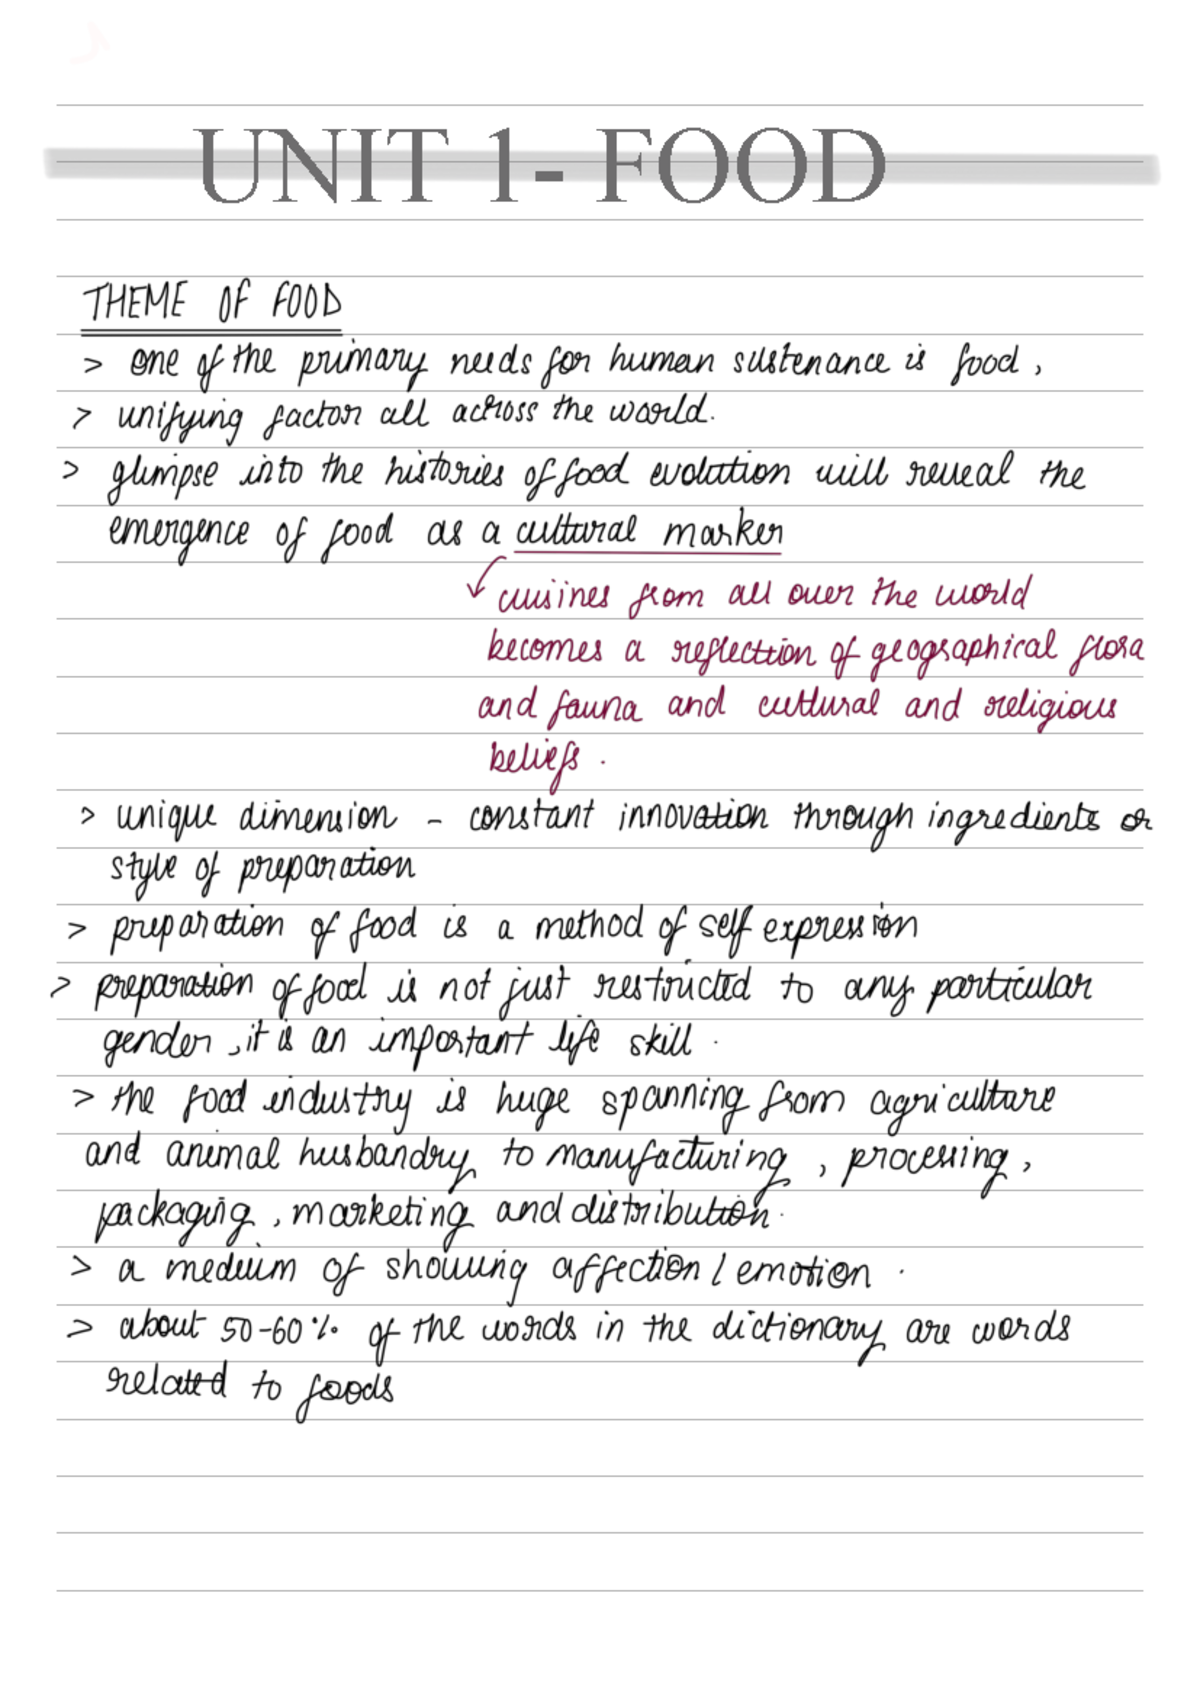 UNIT 1- FOOD
THEME OF FOOD
> one of the primary needs for human sustenance is food,
> unifying factor all across the world.
> glimpse into the histories of food evolution will reveal the
emergence of food as a cultural marker
cuisines from all over the world
becomes a reflection of geographical flora
and fauna and cultural and religious
beliefs.
> unique dimension - constant innovation through ingredients or
style of preparation
> preparation of food is a method of self expression
> preparation of food is not just restricted to any particular
gender, it is an important life skill.
> the food industry is huge spanning from agriculture
and animal husbandry to manufacturing, processing,
packaging, marketing and distribution.
> a medium of showing affection / emotion.
> about 50-60% of the words in the dictionary are words
related to foods